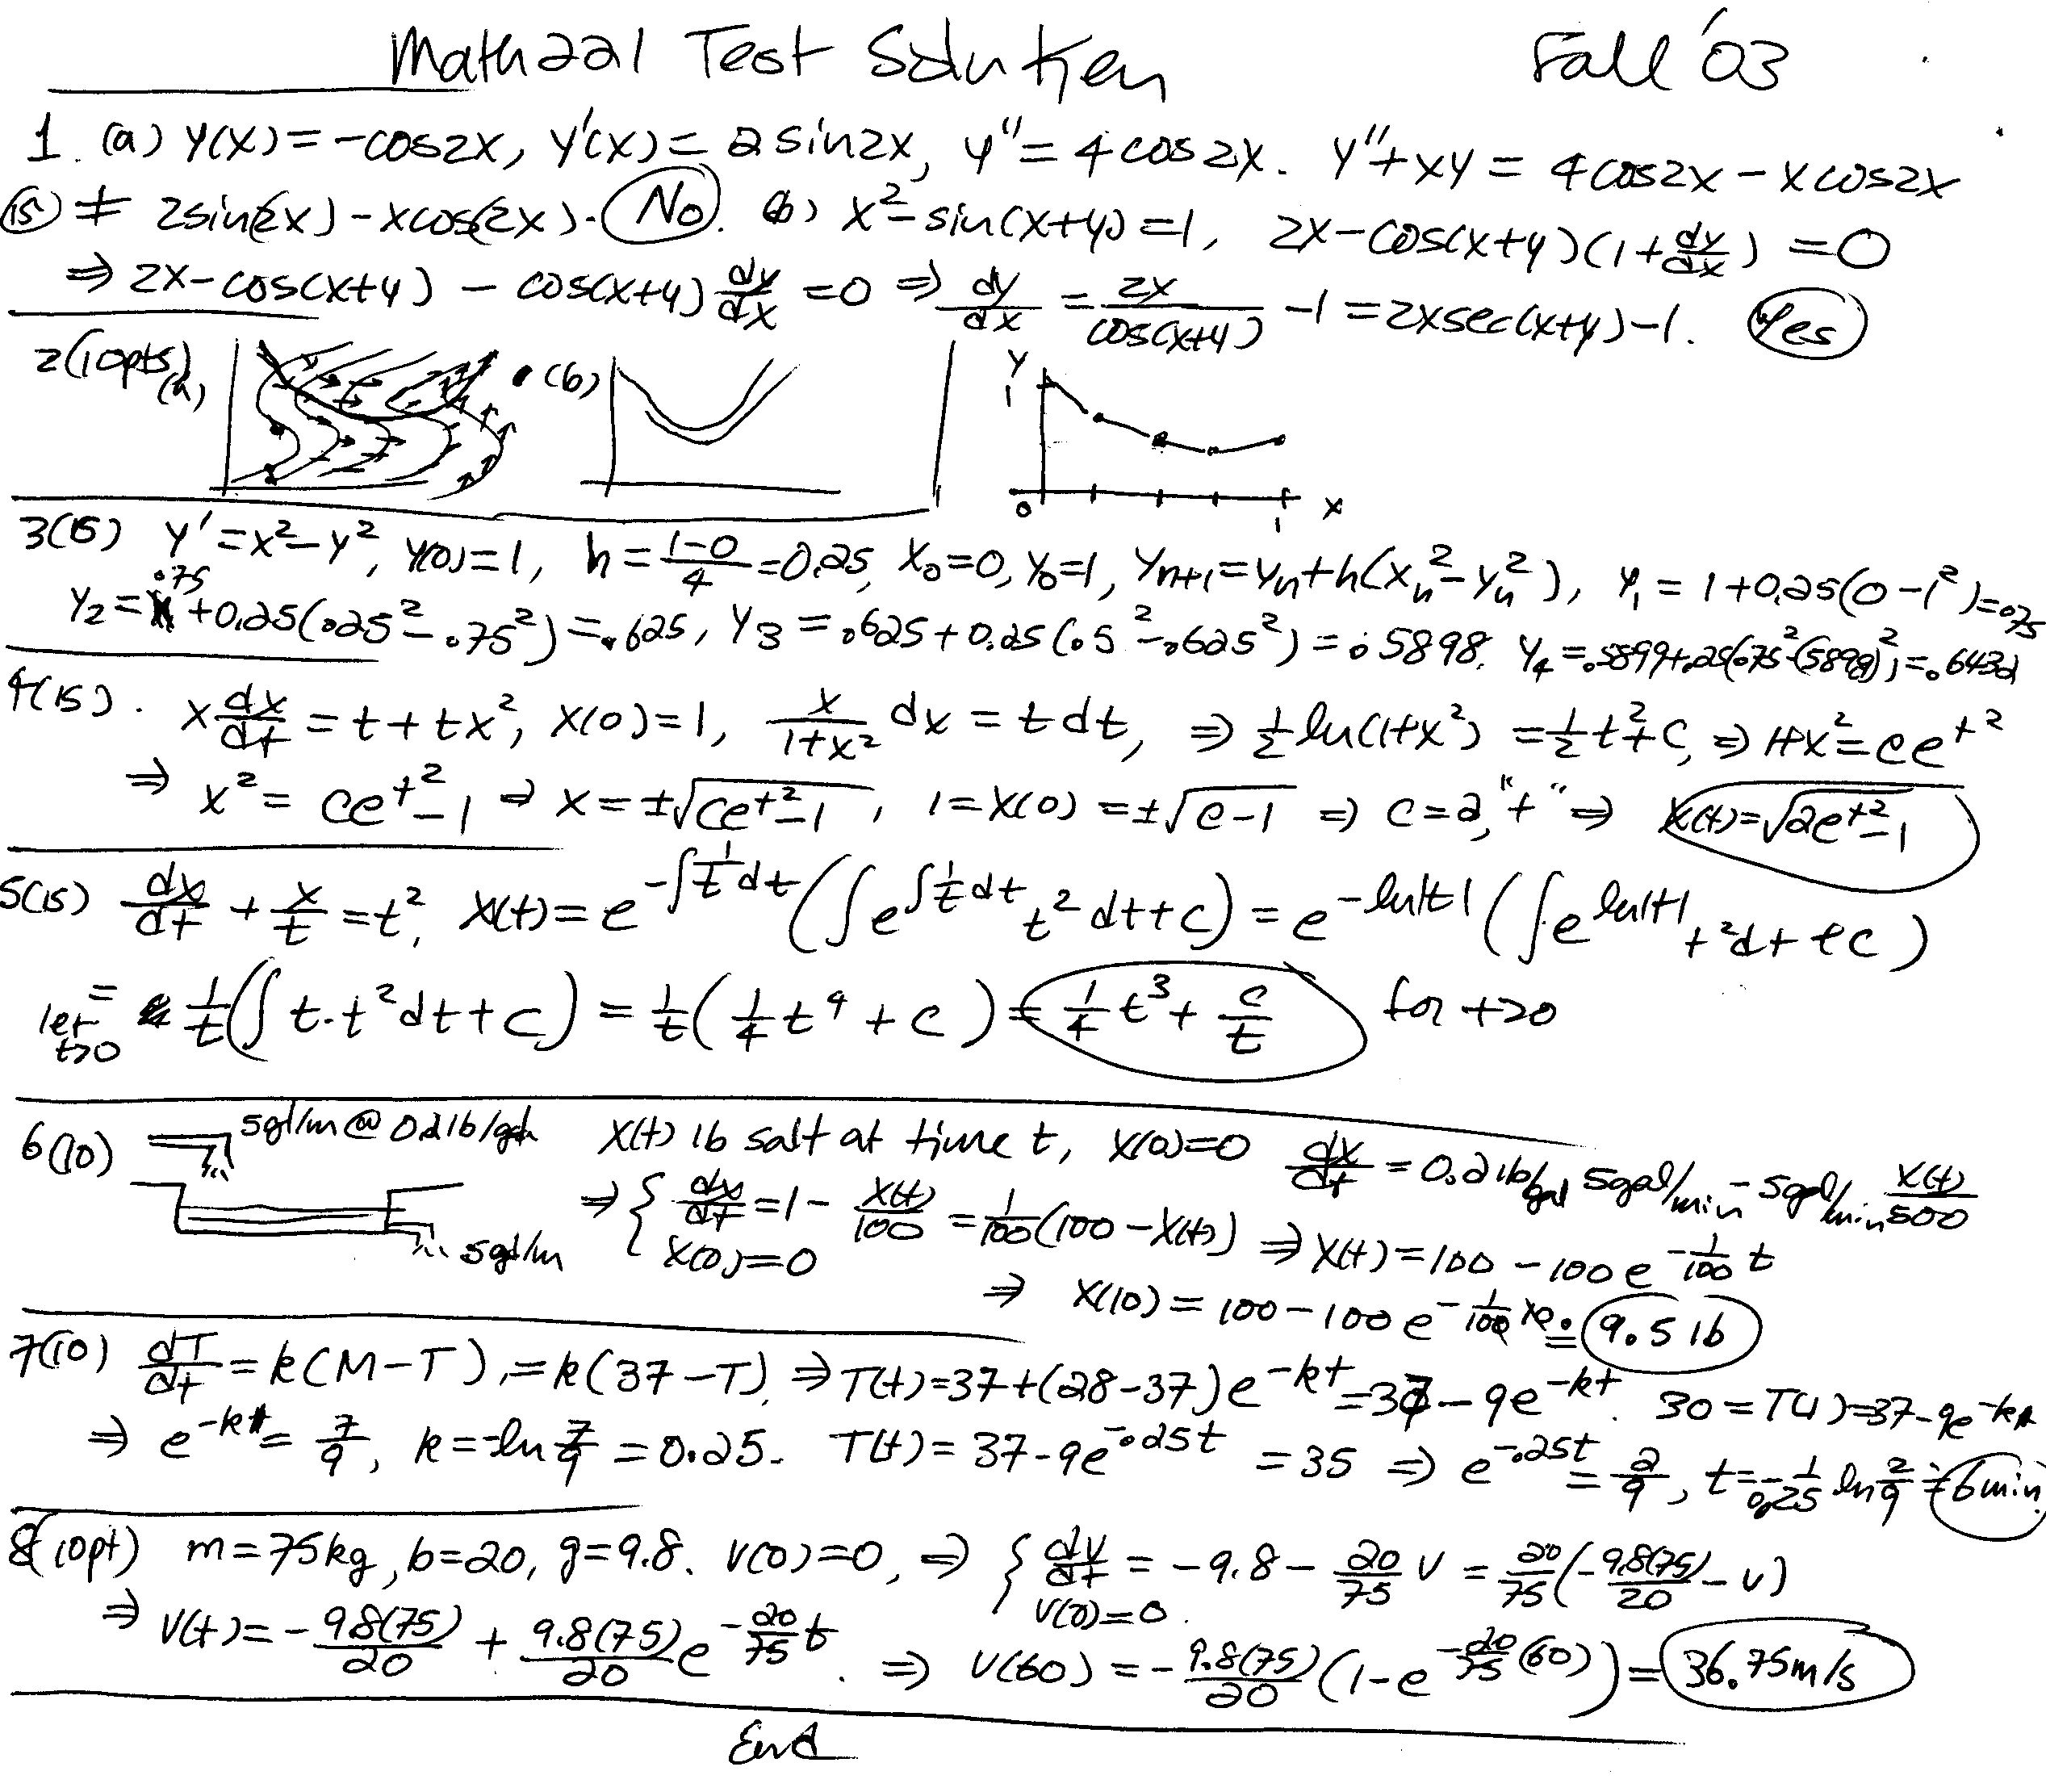 Math 221 Test Solution Fall '03
1. (a) y(x) = -cos2x, y'(x) = 2 sin2x, y'' = 4 cos 2x. y'' + xy = 4cos2x - x cos2x
(15) ≠ 2sin(2x) - xcos(2x). No. (b) x² - sin(x+y) = 1, 2x - cos(x+y)(1 + dy/dx) = 0
⇒ 2x - cos(x+y) - cos(x+y) dy/dx = 0 ⇒ dy/dx = 2x/cos(x+y) - 1 = 2xsec(x+y) - 1. Yes
2(10pts) (a) (b) y 1 0 1 x
3(15) y' = x² - y², y(0) = 1, h = (1-0)/4 = 0.25, x₀ = 0, y₀ = 1, yₙ₊₁ = yₙ + h(xₙ² - yₙ²), y₁ = 1 + 0.25(0 - 1²) = .75
y₂ = .75 + 0.25(.25² - .75²) = .625, y₃ = .625 + 0.25(.5² - .625²) = .5898. y₄ = .5899 + .25(.75² - (.5898)²) = .6432
4(15). x dx/dt = t + tx², x(0) = 1, x/(1+x²) dx = t dt, ⇒ ½ ln(1+x²) = ½ t² + C, ⇒ 1+x² = ce^t²
⇒ x² = ce^t² - 1 ⇒ x = ±√(ce^t² - 1), 1 = x(0) = ±√(c-1) ⇒ c = 2, "+" ⇒ x(t) = √(2e^t² - 1)
5(15) dx/dt + x/t = t², x(t) = e^(-∫1/t dt) (∫ e^(∫1/t dt) t² dt + c) = e^(-ln|t|) (∫ e^(ln|t|) t² dt + c)
= let t>0 1/t (∫ t·t² dt + c) = 1/t (1/4 t⁴ + c) = 1/4 t³ + c/t for t>0
6(10) 5gal/m @ 0.2 lb/gal x(t) lb salt at time t, x(0) = 0 dx/dt = 0.2 lb/gal 5gal/min - 5gal/min x(t)/500
5gal/m ⇒ { dx/dt = 1 - x(t)/100 = 1/100 (100 - x(t)) x(0) = 0 ⇒ x(t) = 100 - 100 e^(-1/100 t)
⇒ x(10) = 100 - 100 e^(-1/100 10) = 9.5 lb
7(10) dT/dt = k(M - T), = k(37 - T). ⇒ T(t) = 37 + (28 - 37)e^(-kt) = 37 - 9e^(-kt). 30 = T(1) = 37 - 9e^(-k)
⇒ e^(-k) = 7/9, k = -ln 7/9 = 0.25. T(t) = 37 - 9e^(-.25t) = 35 ⇒ e^(-.25t) = 2/9, t = -1/0.25 ln 2/9 ≐ 6 min.
8(10pt) m = 75kg, b = 20, g = 9.8. v(0) = 0, ⇒ { dv/dt = -9.8 - 20/75 v = 20/75 (-9.8(75)/20 - v) v(0) = 0.
⇒ v(t) = -9.8(75)/20 + 9.8(75)/20 e^(-20/75 t). ⇒ v(60) = -9.8(75)/20 (1 - e^(-20/75 (60))) = 36.75 m/s
End